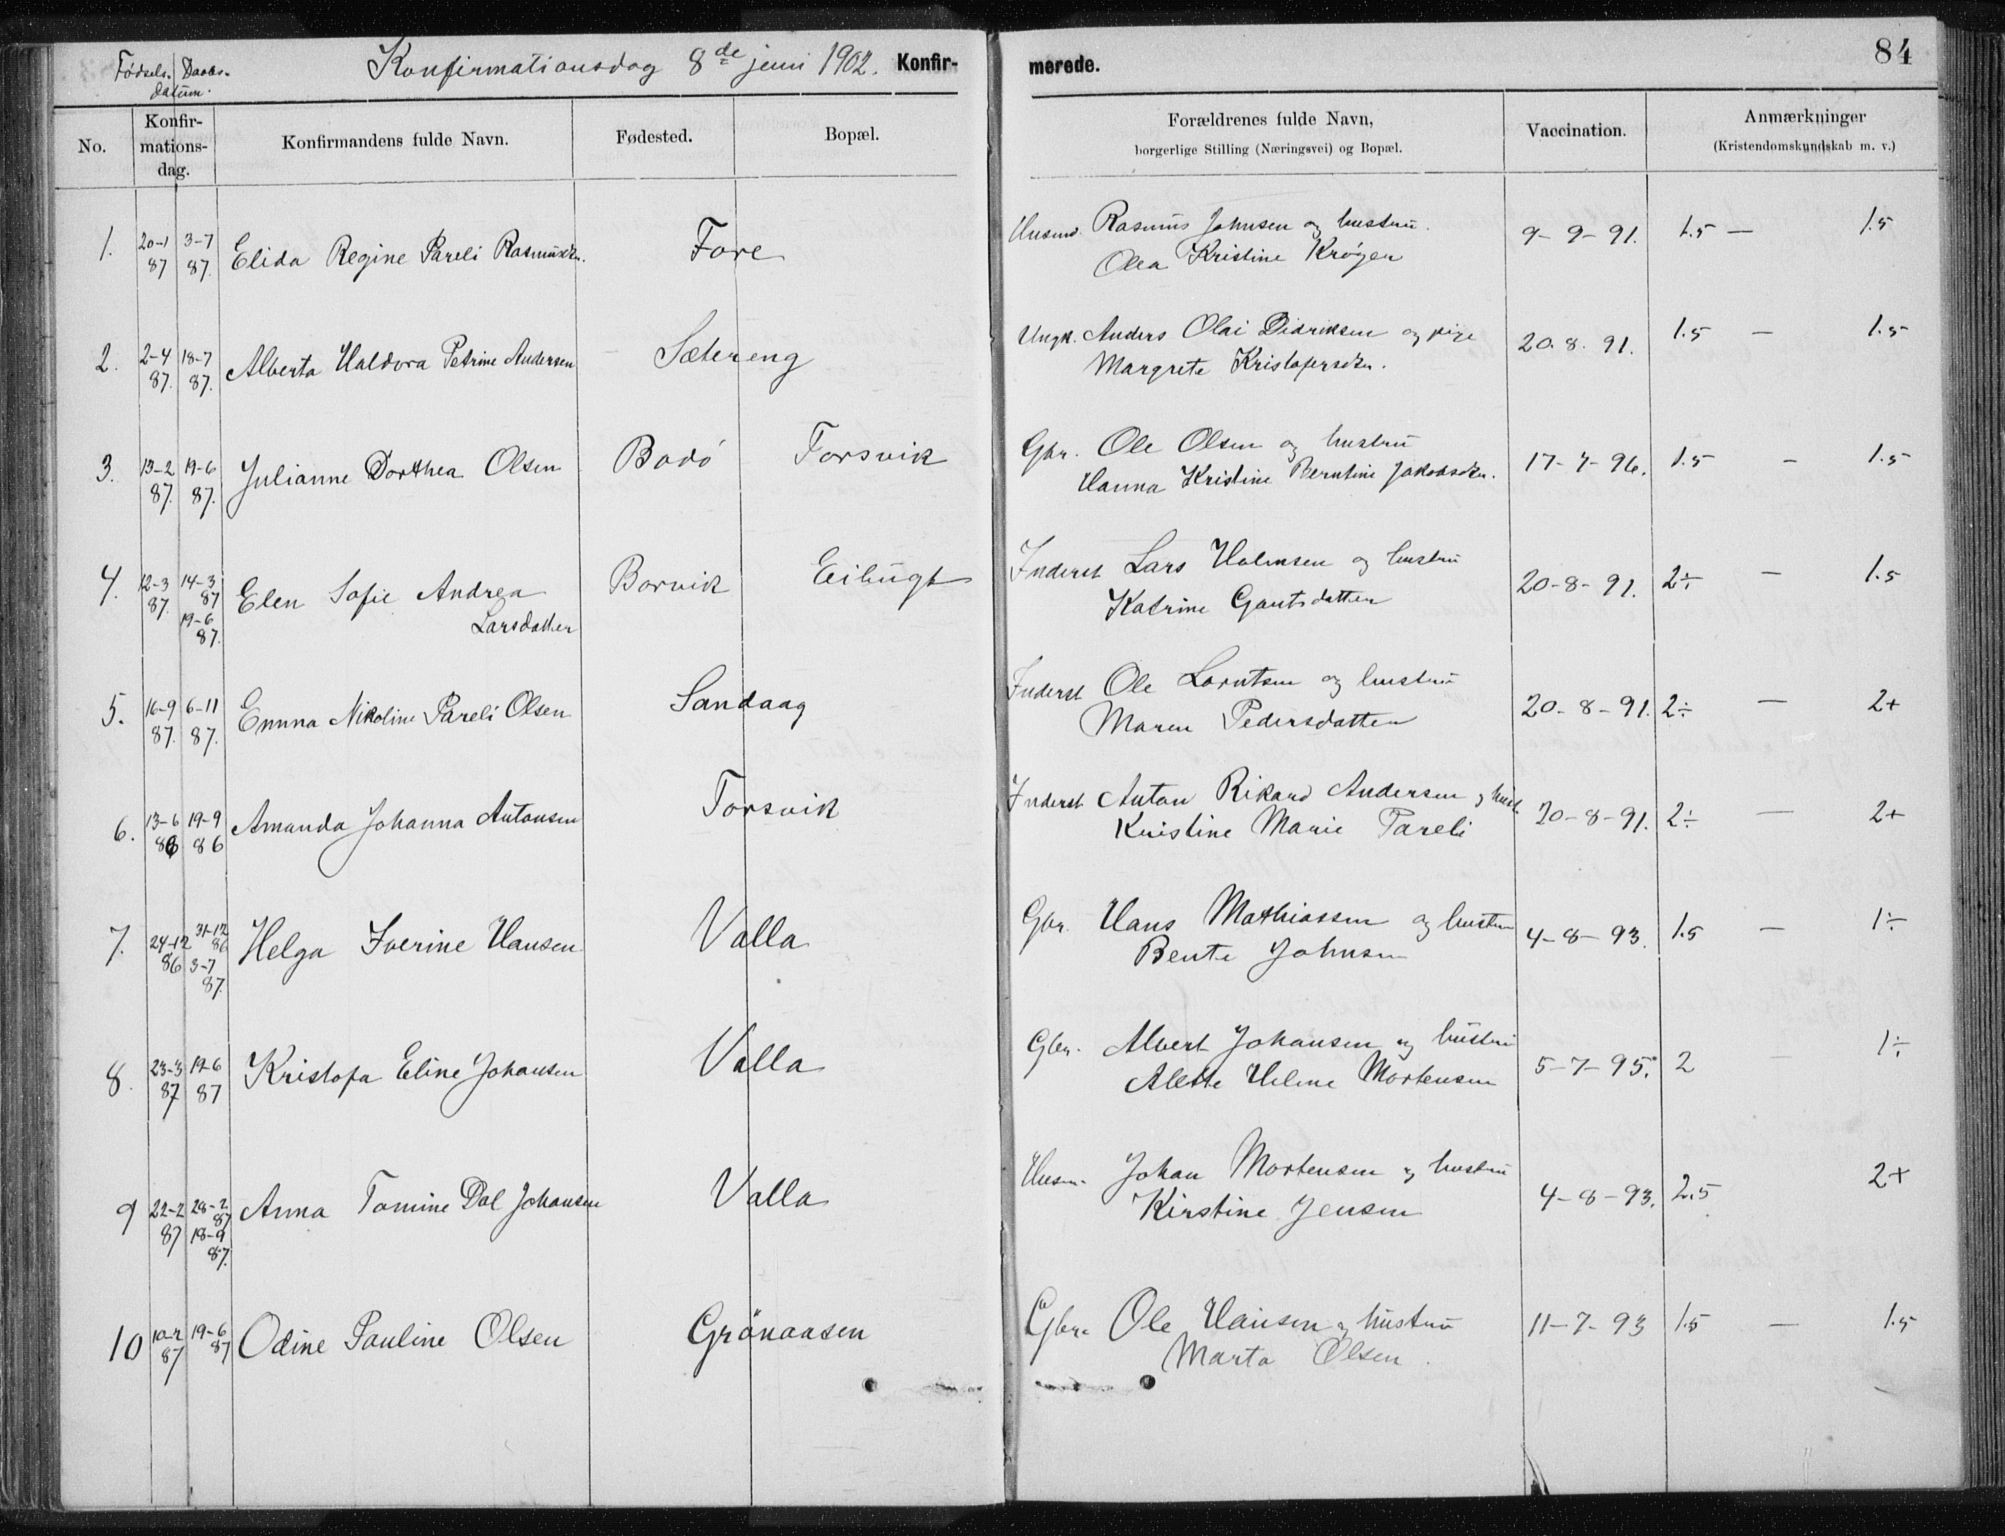 Fødsels- Daabs- Konfirmationsdag 8de juni 1902. Konfir- merede. 84
datum.
No. Konfir-mations-dag. Konfirmandens fulde Navn. Fødested. Bopæl. Forældrenes fulde Navn, borgerlige Stilling (Næringsvei) og Bopæl. Vaccination. Anmærkninger (Kristendomskundskab m. v.)
1. 20-1 87 3-7 87. Elida Regine Pareli Rasmusdtr. Fore Husmd. Rasmus Johnsen og hustru. 9-9-91. 1.5 — 1.5
Olea Kristine Krøger
2. 2-4 87. 18-7 87. Alberta Haldora Petrine Andersen Sætereng Ungk. Anders Olai Didriksen og pige 20.8.91. 1.5 — 1.5
Margrete Kristofersdtr.
3. 13-2 87. 19-6 87. Julianne Dorthea Olsen Bodó Torsvik Gbr. Ole Olsen og hustru 17-7-96. 1.5 – 1.5
Hanna Kristine Berntine Jakobsdtr.
4. 12-3 87. 14-3 87 Elen Sofie Andrea Borvik Eibugt Inderst Lars Holmsen og hustru 20-8-91. 2÷ — 1.5
19-6 87. Larsdatter Katrine Gautsdatter
5. 16-9 87. 6-11 87. Emma Nikoline Pareli Olsen Sandaag Inderst Ole Lorntsen og hustru 20-8-91. 2÷ — 2+
Maren Pedersdatter
6. 13-6 86 19-9 86 Amanda Johanna Antonsen Torsvik Inderst Anton Rikard Andersen og hust. 20-8-91. 2÷ — 2+
Kristine Marie Pareli
7. 24-12 86 31-12 86 Helga Iverine Hansen Valla Gbr. Hans Mathiassen og hustru 4-8-93. 1.5 – 1÷
3-7 87. Bente Johnsen
8. 23-3 87 19-6 87 Kristofa Eline Johansen Valla Gbr. Albert Johansen og hustru 5-7-95. 2 – 1÷
Alette Helene Mortensen
9 22-2 87 28-2 87 Anna Tomine Dal Johansen Valla Husm. Johan Mortensen og hustru 4-8-93. 2.5 2+
18-9 87. Kirstine Jensen
10 10-2 87 19-6 87 Odine Pauline Olsen Grönaasen Gbr. Ole Hansen og hustru 11-7-93 1.5 — 1.5
Marta Olsen.